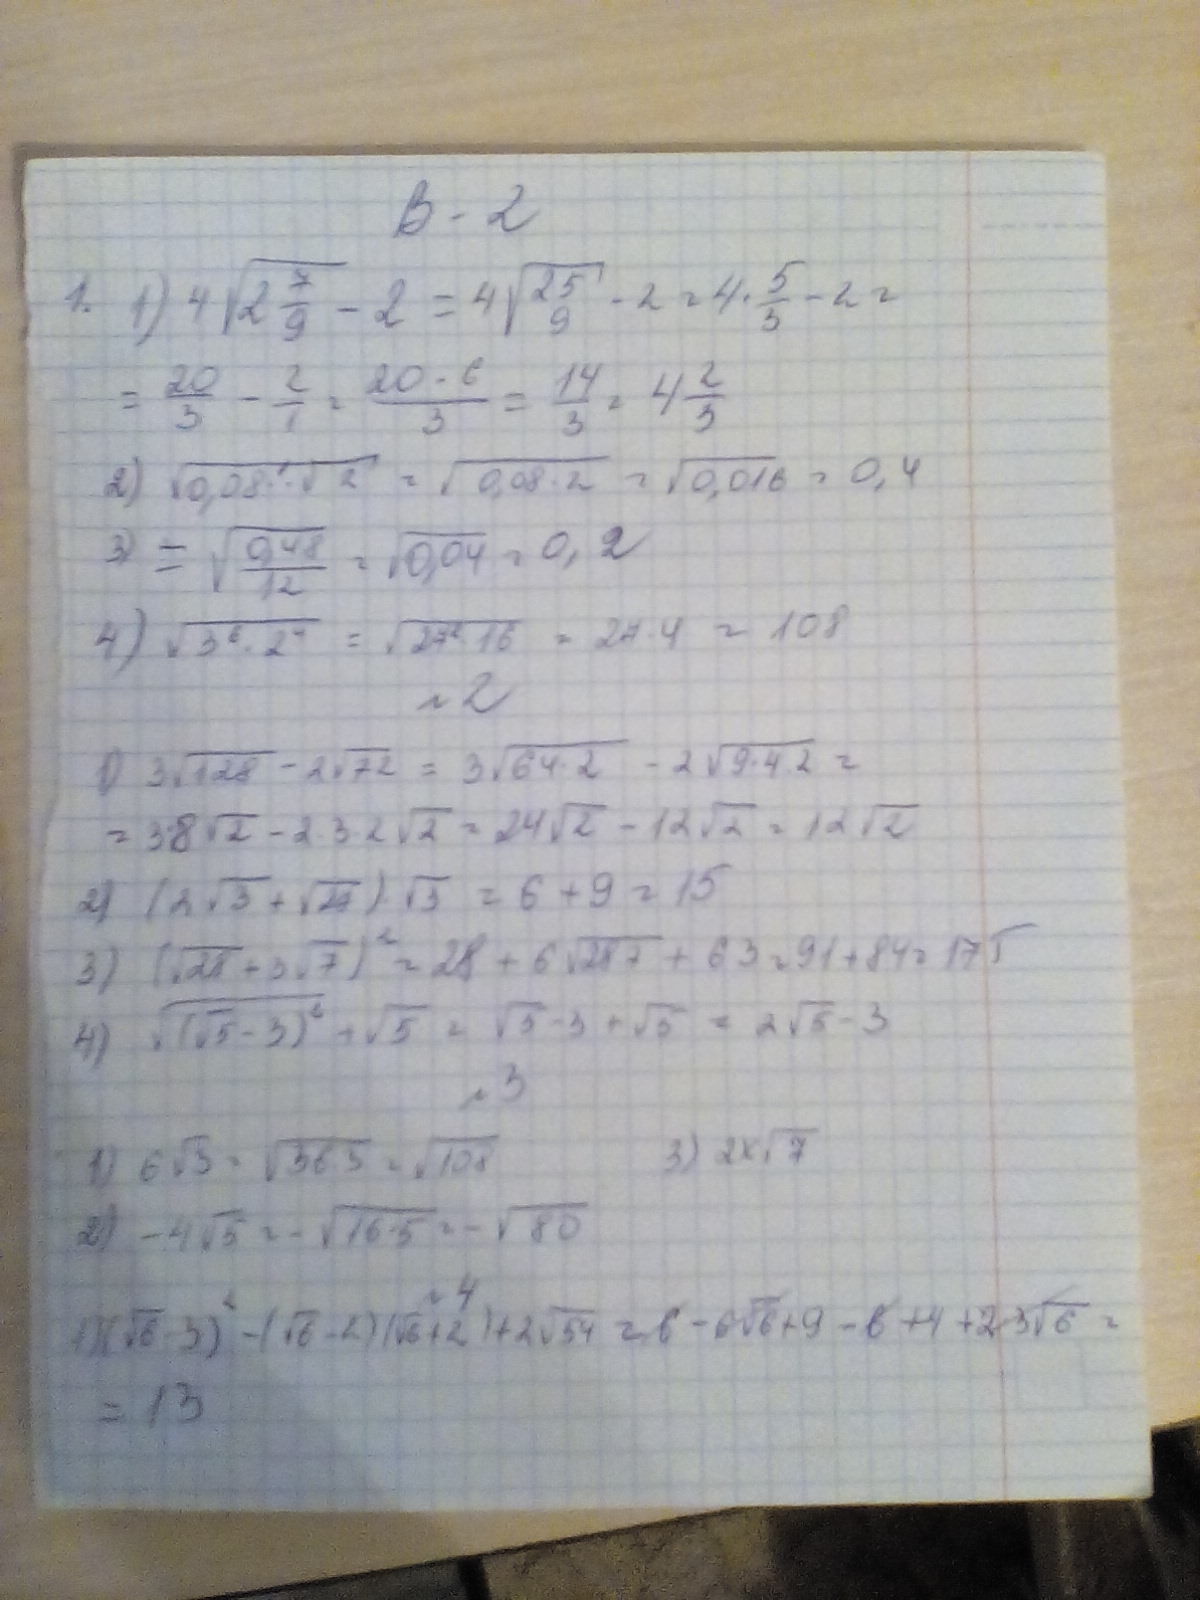 В - 2
1. 1) 4√(2 7/9) - 2 = 4√(25/9) - 2 = 4·5/3 - 2 =
= 20/3 - 2/1 = (20 - 6)/3 = 14/3 = 4 2/3
2) √0,08 · √2 = √(0,08·2) = √0,016 = 0,4
3) = √(0,48/12) = √0,04 = 0,2
4) √(3⁶·2⁴) = √(27²·16) = 27·4 = 108
№2
1) 3√128 - 2√72 = 3√(64·2) - 2√(9·4·2) =
= 3·8√2 - 2·3·2√2 = 24√2 - 12√2 = 12√2
2) (2√3 + √27)·√3 = 6 + 9 = 15
3) (√28 + 3√7)² = 28 + 6√(28·7) + 63 = 91 + 84 = 175
4) √((√5 - 3)²) + √5 = √5 - 3 + √5 = 2√5 - 3
№3
1) 6√3 = √(36·3) = √108 3) 2x√7
2) -4√5 = -√(16·5) = -√80
№4
1) (√6 - 3)² - (√6 - 2)(√6 + 2) + 2√54 = 6 - 6√6 + 9 - 6 + 4 + 2·3√6 =
= 13